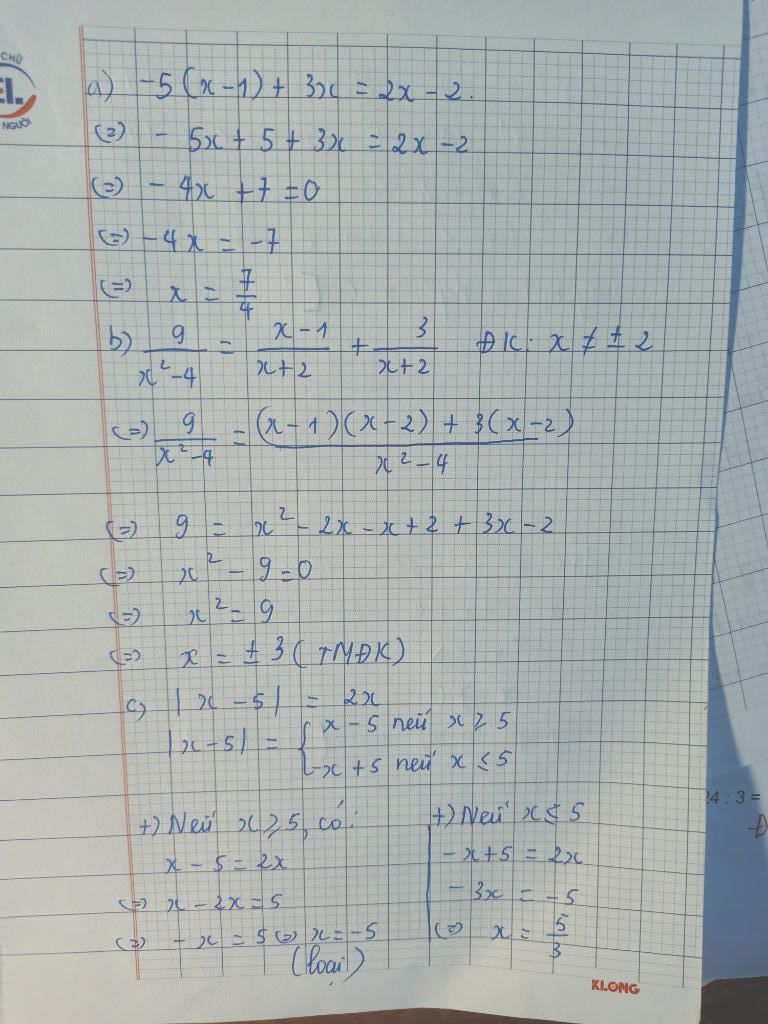 CHỮ
EL
NGƯỜI
a) -5(x-1) + 3x = 2x - 2.
(=) - 5x + 5 + 3x = 2x - 2
(=) - 4x + 7 = 0
(=) - 4x = -7
(=) x = 7/4
b) 9/(x² - 4) = (x - 1)/(x + 2) + 3/(x + 2) ĐK: x ≠ ± 2
(=) 9/(x² - 4) = ((x - 1)(x - 2) + 3(x - 2))/(x² - 4)
(=) 9 = x² - 2x - x + 2 + 3x - 2
(=) x² - 9 = 0
(=) x² = 9
(=) x = ± 3 (TMĐK)
c, |x - 5| = 2x
|x - 5| = { x - 5 nếu x ≥ 5
-x + 5 nếu x ≤ 5
+) Nếu x ≥ 5, có:
x - 5 = 2x
(=) x - 2x = 5
(=) - x = 5 (=) x = -5
(loại)
+) Nếu x ≤ 5
- x + 5 = 2x
- 3x = -5
(=) x = 5/3
24 : 3 =
KLONG